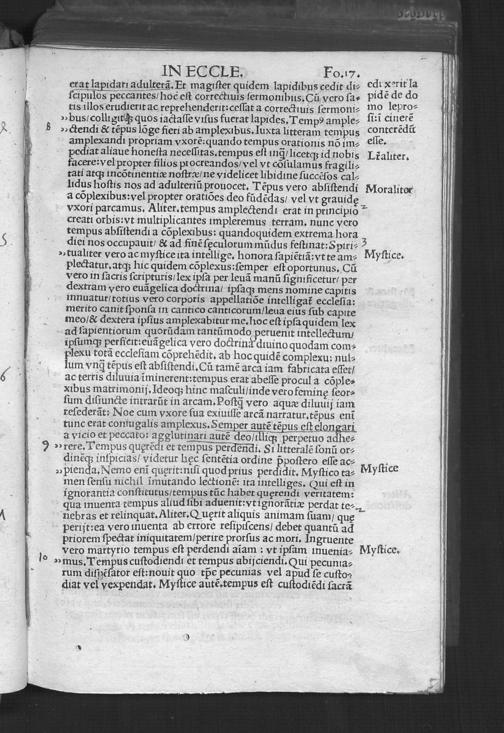 IN ECCLE. Fo.17.
erat lapidari adulterā. Et magister quidem lapidibus cedit di-
scipulos peccantes/hoc est correctiuis sermonibus. Cū vero sa-
tis illos erudierit ac reprehenderit: cessat a correctiuis sermoni-
bus/colligitq; quos iactasse visus fuerat lapides. Tempꝰ ample-
8 ctendi & tēpus lōge fieri ab amplexibus. Iuxta litteram tempus
amplexandi propriam vxorē: quando tempus orationis nō im-
pediat aliaue honesta necessitas. tempus est inq̄/licetq; id nobis
facere: vel propter filios procreandos/vel vt cōsulamus fragili-
tati atq; incōtinentiæ nostræ/ne videlicet libidine succēsos cal-
lidus hostis nos ad adulteriū prouocet. Tēpus vero abstinēdi
a cōplexibus: vel propter oratiōes deo fūdēdas/ vel vt grauidę
vxori parcamus. Aliter. tempus amplectendi erat in principio
creati orbis: vt multiplicantes impleremus terram. nunc vero
tempus abstinēdi a cōplexibus: quandoquidem extrema hora
diei nos occupauit/ & ad finē seculorum mūdus festinat: Spiri-
tualiter vero ac mystice ita intellige. honora sapiētiā: vt te am-
plectatur. atq; hic quidem cōplexus: semper est oportunus. Cū
vero in sacris scripturis/lex ipsa per leuā manū significetur/per
dextram vero euāgelica doctrina/ ipsaq; mens nomine capitis
innuatur/totius vero corporis appellatiōe intelligat ecclesia:
merito canit sponsa in cantico canticorum/leua eius sub capite
meo/& dextera ipsius amplexabitur me. hoc est ipsa quidem lex
ad sapientiorum quorūdam tantūmodo peruenit intellectum/
ipsumq; perficit: euāgelica vero doctrina diuino quodam com-
plexu totā ecclesiam cōprehēdit. ab hoc quidē complexu: nul-
lum vnq̄ tēpus est abstinēdi. Cū tamē arca iam fabricata esset/
ac terris diluuia iminerent: tempus erat abesse procul a cōple-
xibus matrimonij. Ideoq; hinc masculi/inde vero feminę seor-
sum disiuncte intrarūt in arcam. Postq̄ vero aquæ diluuij iam
resederāt: Noe cum vxore sua exiuisse arcā narratur. tēpus eni
tunc erat coniugalis amplexus. Semper autē tēpus est elongari
a vicio et peccato: agglutinari autē deo/illiq; perpetuo adhe-
9 rere. Tempus querēdi et tempus perdendi. Si litteralē sonū or-
dinēq; inspicias/videtur hęc sentētia ordine p̄postero esse ac-
pienda. Nemo eni querit: nisi quod prius perdidit. Mystico ta-
men sensu nichil imutando lectionē: ita intelliges. Qui est in
ignorantia constitutus/tempus tūc habet querendi veritatem:
qua inuenta tempus aliud sibi aduenit: vt ignorātiæ perdat te-
nebras et relinquat. Aliter. Querit aliquis animam suam/ quę
perijt: ea vero inuenta ab errore resipiscens/ debet quantū ad
priorem spectat iniquitatem/perire prorsus ac mori. Ingruente
vero martyrio tempus est perdendi aīam: vt ipsam inuenia-
10 mus. Tempus custodiendi et tempus abijciendi. Qui pecunia-
rum dispēsator est: nouit quo tp̄e pecunias vel apud se custo-
diat vel vexpendat. Mystice autē. tempus est custodiēdi sacrā
edixerit la
pidē de do
mo lepro-
si: ī cinerē
conterēdū
esse.
Lr̄aliter.
Moraliter
2
3
Mystice.
Mystice
2
Mystice.